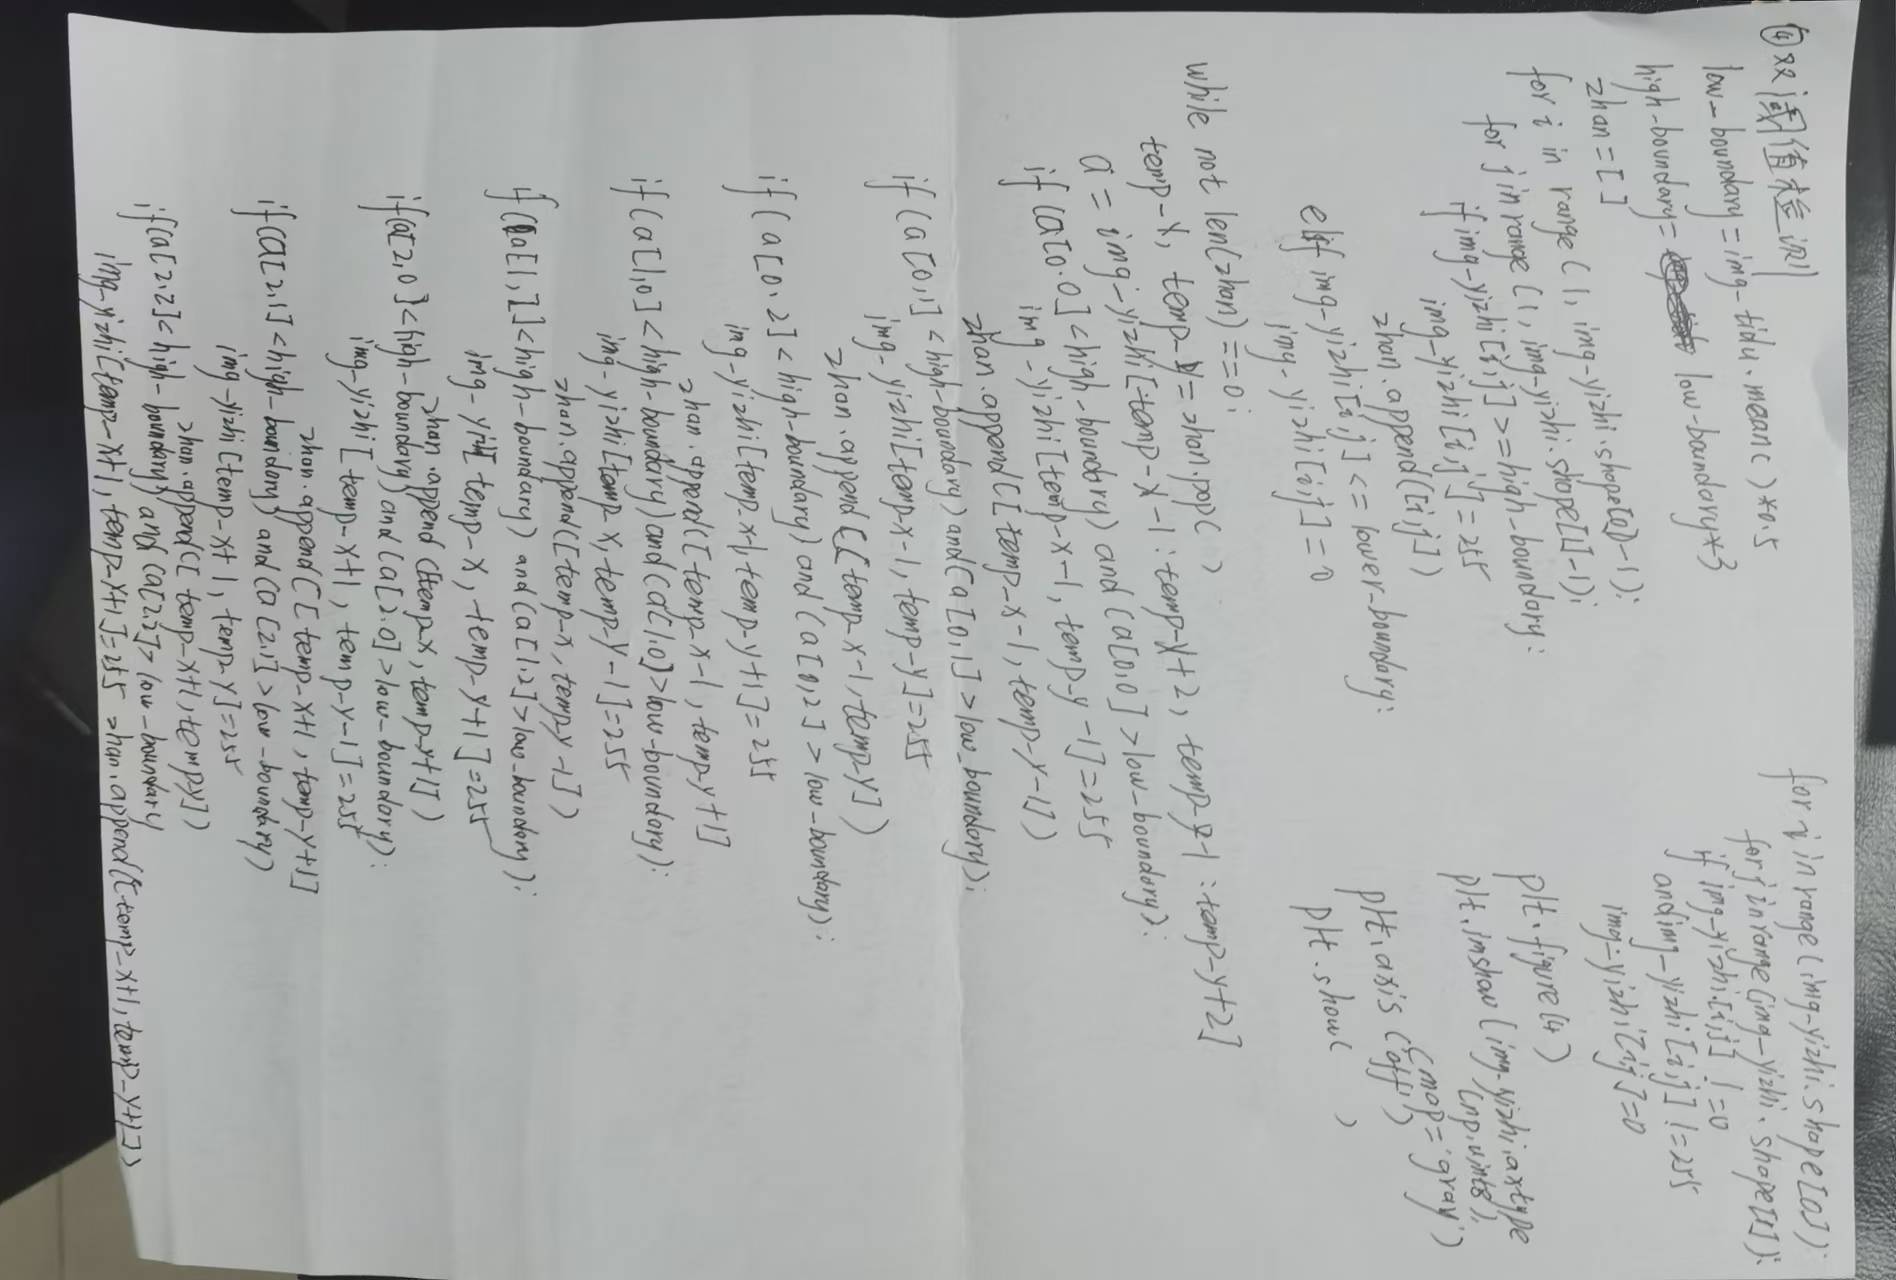 ④双阈值检测
low-boundary = img-tidu.mean( )*0.5
high-boundary = low-boundary*3
zhan = [ ]
for i in range (1, img-yizhi.shape[0]-1):
for j in range (1, img-yizhi.shape[1]-1):
if img-yizhi[i,j] >= high-boundary:
img-yizhi[i,j] = 255
zhan.append([i,j])
elif img-yizhi[i,j] <= lower-boundary:
img-yizhi[i,j] = 0
while not len(zhan) == 0:
temp-x, temp-y = zhan.pop( )
a = img-yizhi[temp-x-1:temp-x+2, temp-y-1:temp-y+2]
if (a[0,0] < high-boundary) and (a[0,0] > low-boundary):
img-yizhi[temp-x-1, temp-y-1] = 255
zhan.append([temp-x-1, temp-y-1])
if (a[0,1] < high-boundary) and (a[0,1] > low_boundary):
img-yizhi[temp-x-1, temp-y] = 255
zhan.append([temp-x-1, temp-y])
if (a[0,2] < high-boundary) and (a[0,2] > low-boundary):
img-yizhi[temp-x-1, temp-y+1] = 255
zhan.append([temp-x-1, temp-y+1]
if (a[1,0] < high-boundary) and (a[1,0] > low-boundary):
img-yizhi[temp-x, temp-y-1] = 255
zhan.append([temp-x, temp-y-1])
if (a[1,] < high-boundary) and (a[1,2] > low-boundary):
img-yizhi[temp-x, temp-y+1] = 255
zhan.append([temp-x, temp-y+1])
if (a[2,0] < high-boundary) and (a[2,0] > low-boundary):
img-yizhi[temp-x+1, temp-y-1] = 255
zhan.append([temp-x+1, temp-y+1]
if (a[2,1] < high-boundary) and (a[2,1] > low-boundary)
img-yizhi[temp-x+1, temp-y] = 255
zhan.append([temp-x+1, temp-y])
if (a[2,2] < high-boundary) and (a[2,2] > low-boundary)
img-yizhi[temp-x+1, temp-y+1] = 255 zhan.append([temp-x+1, temp-y+1])
for i in range(img-yizhi.shape[0]):
for j in range(img-yizhi.shape[1]):
if img-yizhi[i,j] != 0
and img-yizhi[i,j] != 255
img-yizhi[i,j] = 0
plt.figure(4)
plt.imshow(img-yizhi.astype
(np.uint8),
cmap = 'gray')
plt.axis('off')
plt.show( )